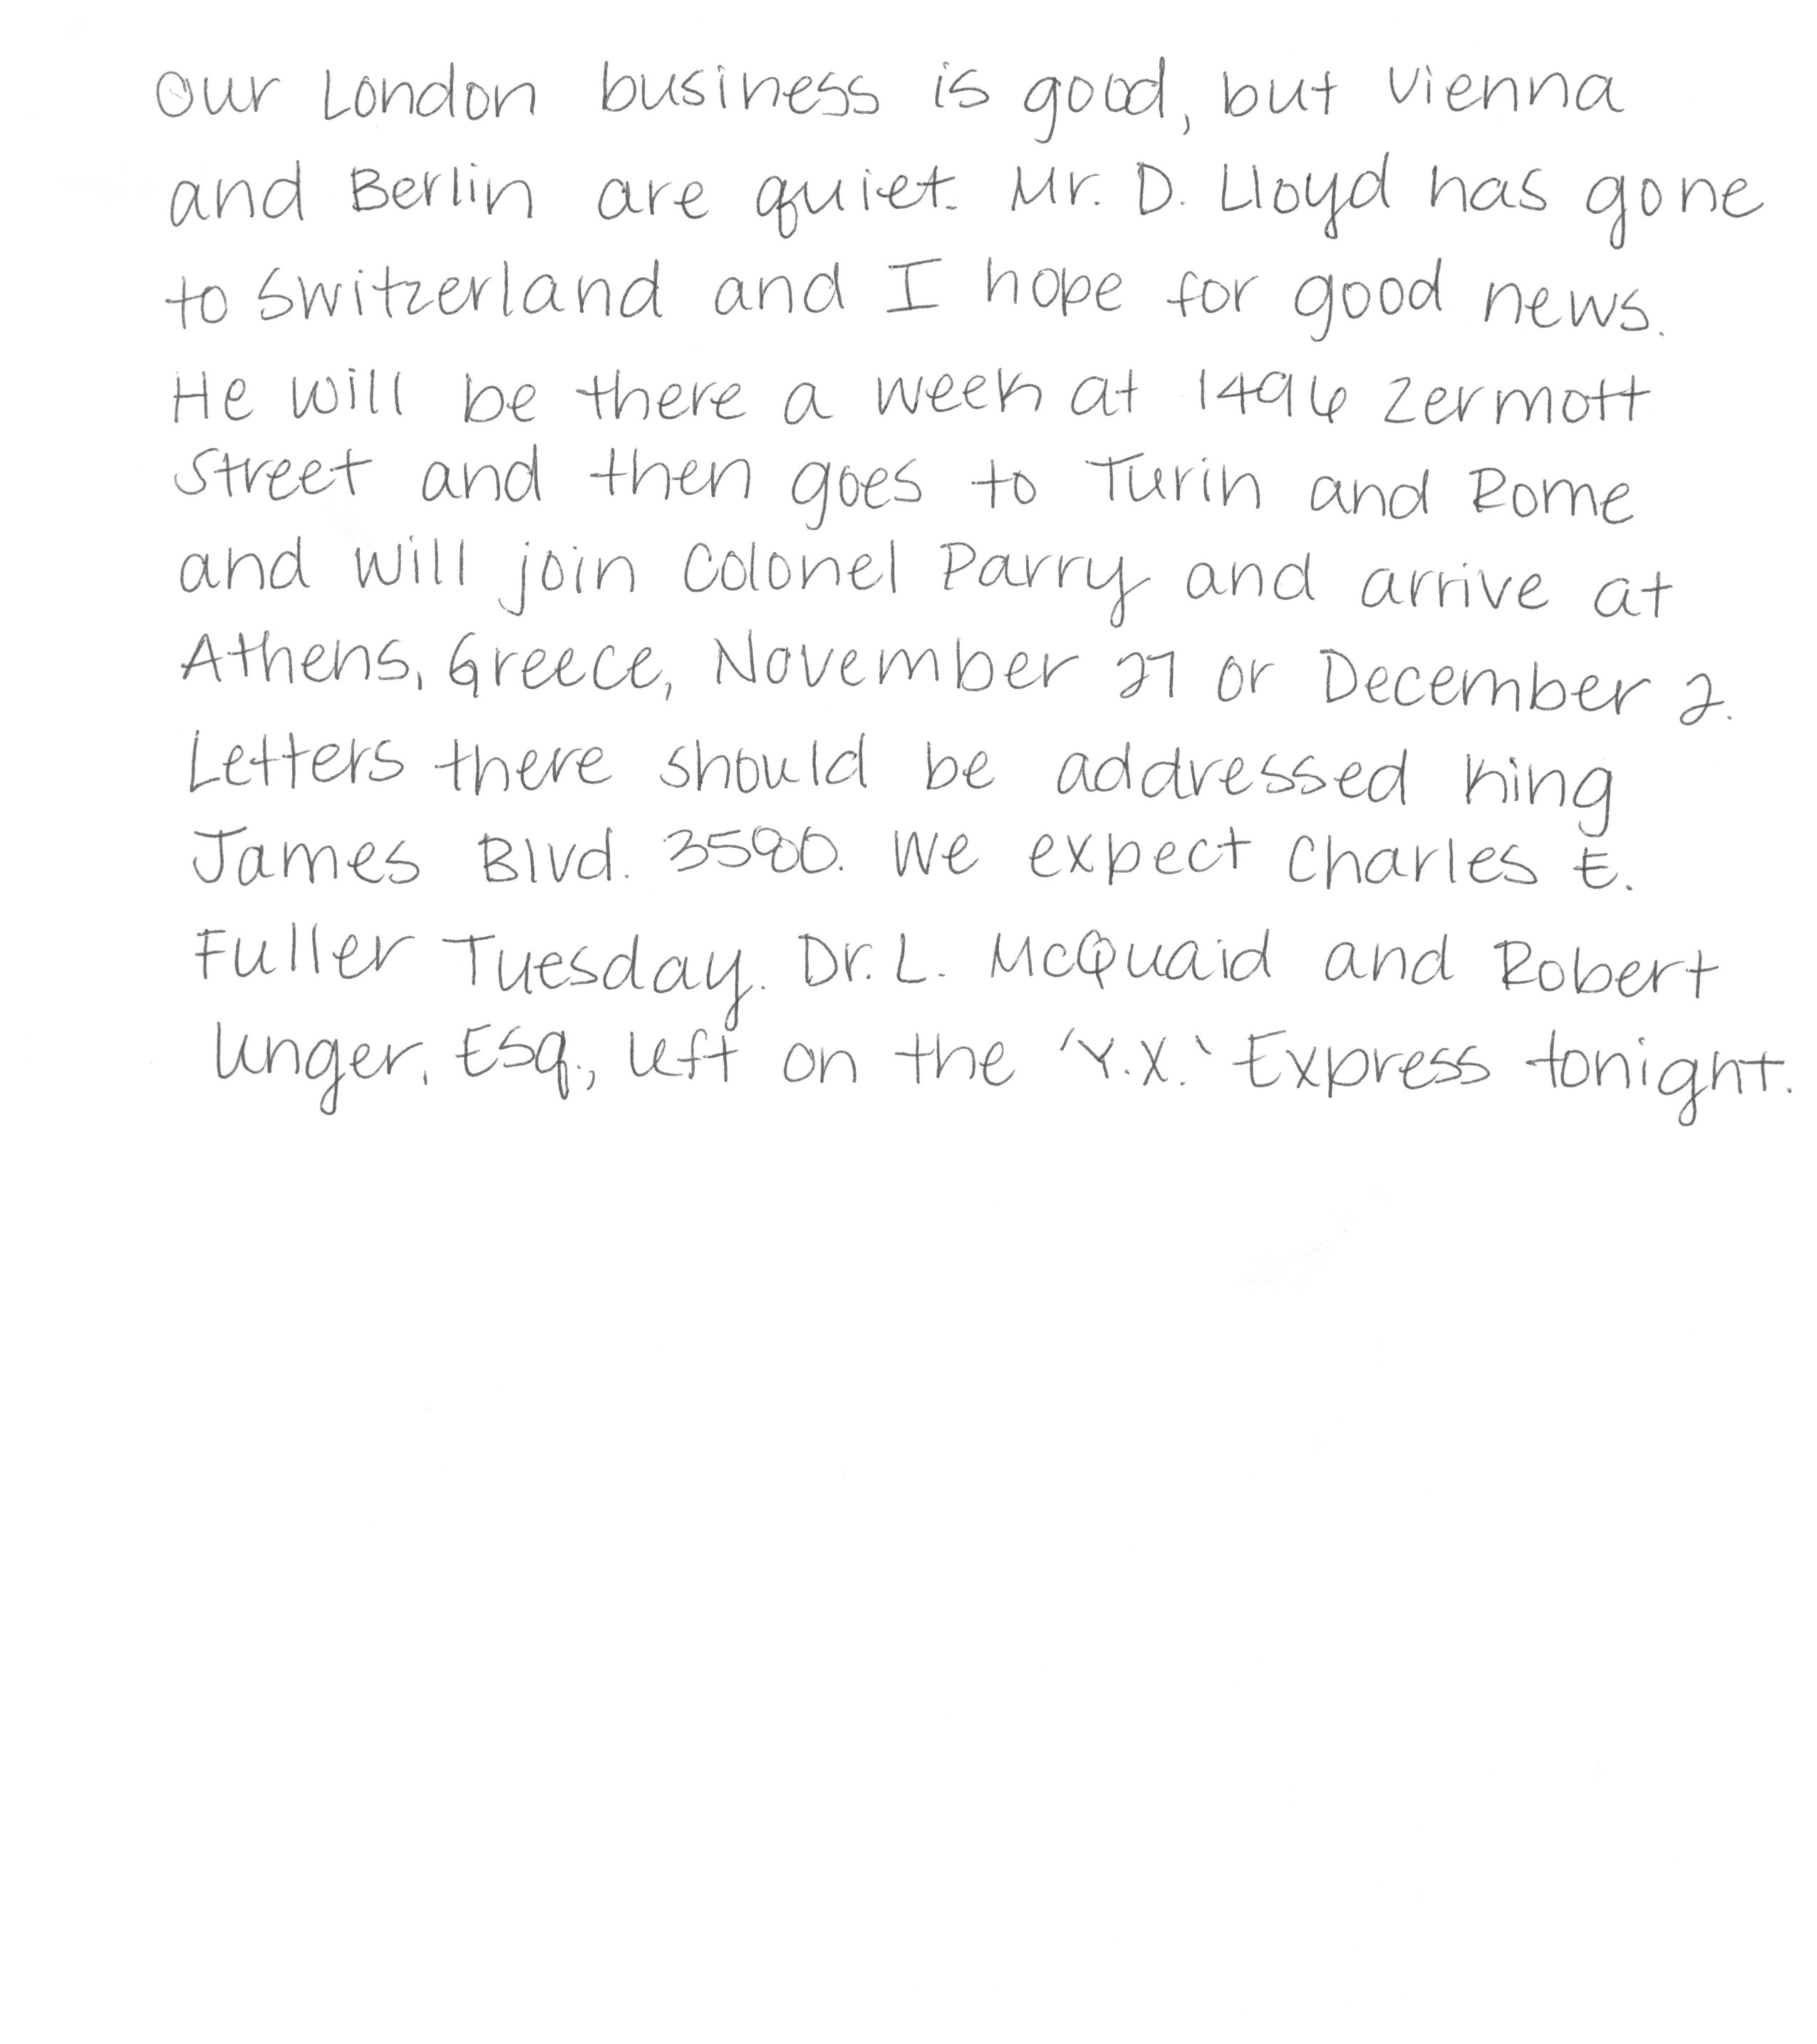 Our London business is good, but Vienna
and Berlin are quiet. Mr. D. Lloyd has gone
to Switzerland and I hope for good news.
He will be there a week at 1496 Zermott
Street and then goes to Turin and Rome
and will join Colonel Parry and arrive at
Athens, Greece, November 27 or December 2.
Letters there should be addressed King
James Blvd. 3580. We expect Charles E.
Fuller Tuesday. Dr. L. McQuaid and Robert
Unger, Esq., left on the 'Y.X.' Express tonight.